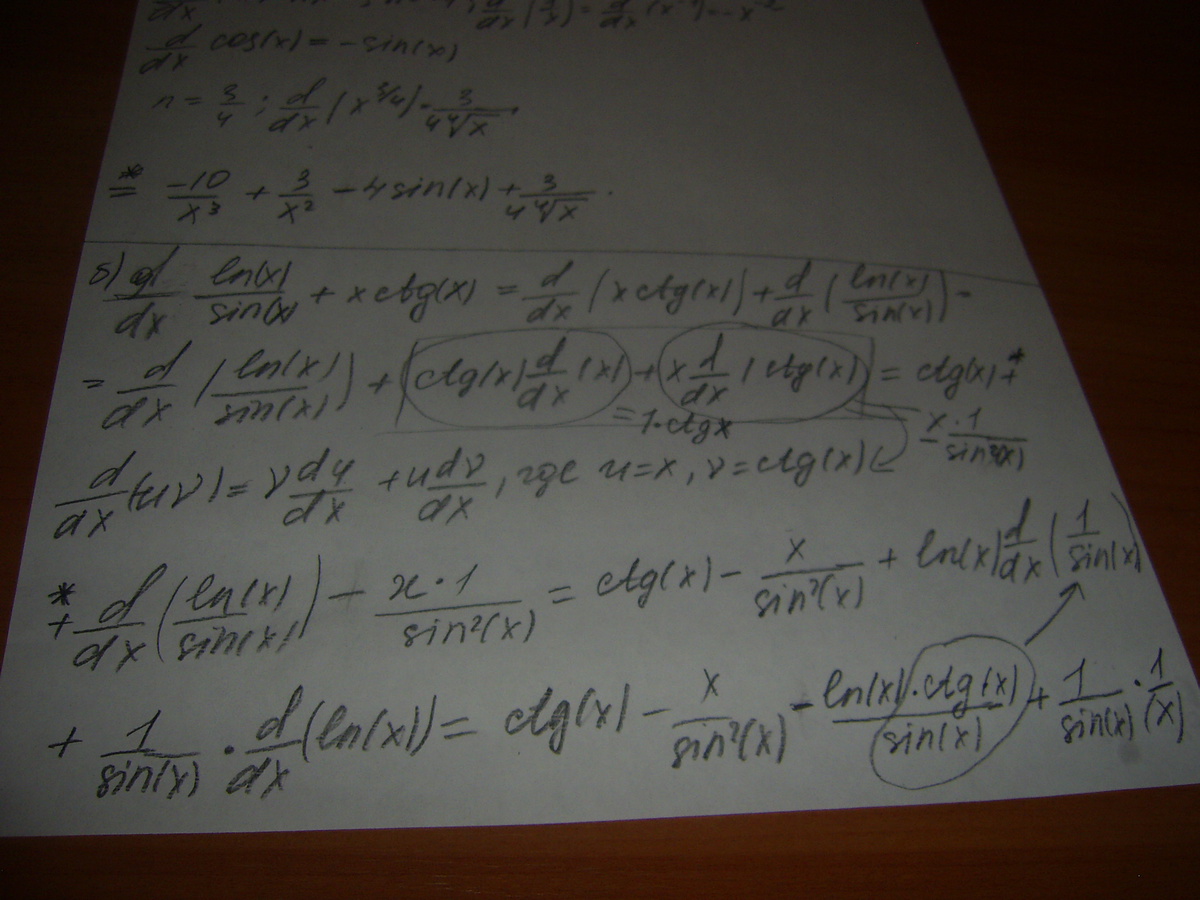 d/dx (3/x) = d/dx (x⁻¹) = -x⁻²
d/dx cos(x) = -sin(x)
n = 3/4 ; d/dx (x^(3/4)) = 3/(4 ⁴√x) .
=* -10/x³ + 3/x² - 4 sin(x) + 3/(4 ⁴√x) .
б) d/dx ln(x)/sin(x) + x ctg(x) = d/dx (x ctg(x)) + d/dx (ln(x)/sin(x)) =
= d/dx (ln(x)/sin(x)) + (ctg(x) d/dx (x) + x d/dx (ctg(x)) = ctg(x) +*
= 1·ctgx
- x·1/sin²(x)
d/dx (uv) = v du/dx + u dv/dx , где u=x, v=ctg(x)
*+ d/dx (ln(x)/sin(x)) - x·1/sin²(x) = ctg(x) - x/sin²(x) + ln(x) d/dx (1/sin(x))
+ 1/sin(x) · d/dx (ln(x)) = ctg(x) - x/sin²(x) - ln(x)·ctg(x)/sin(x) + 1/sin(x) · 1/(x)